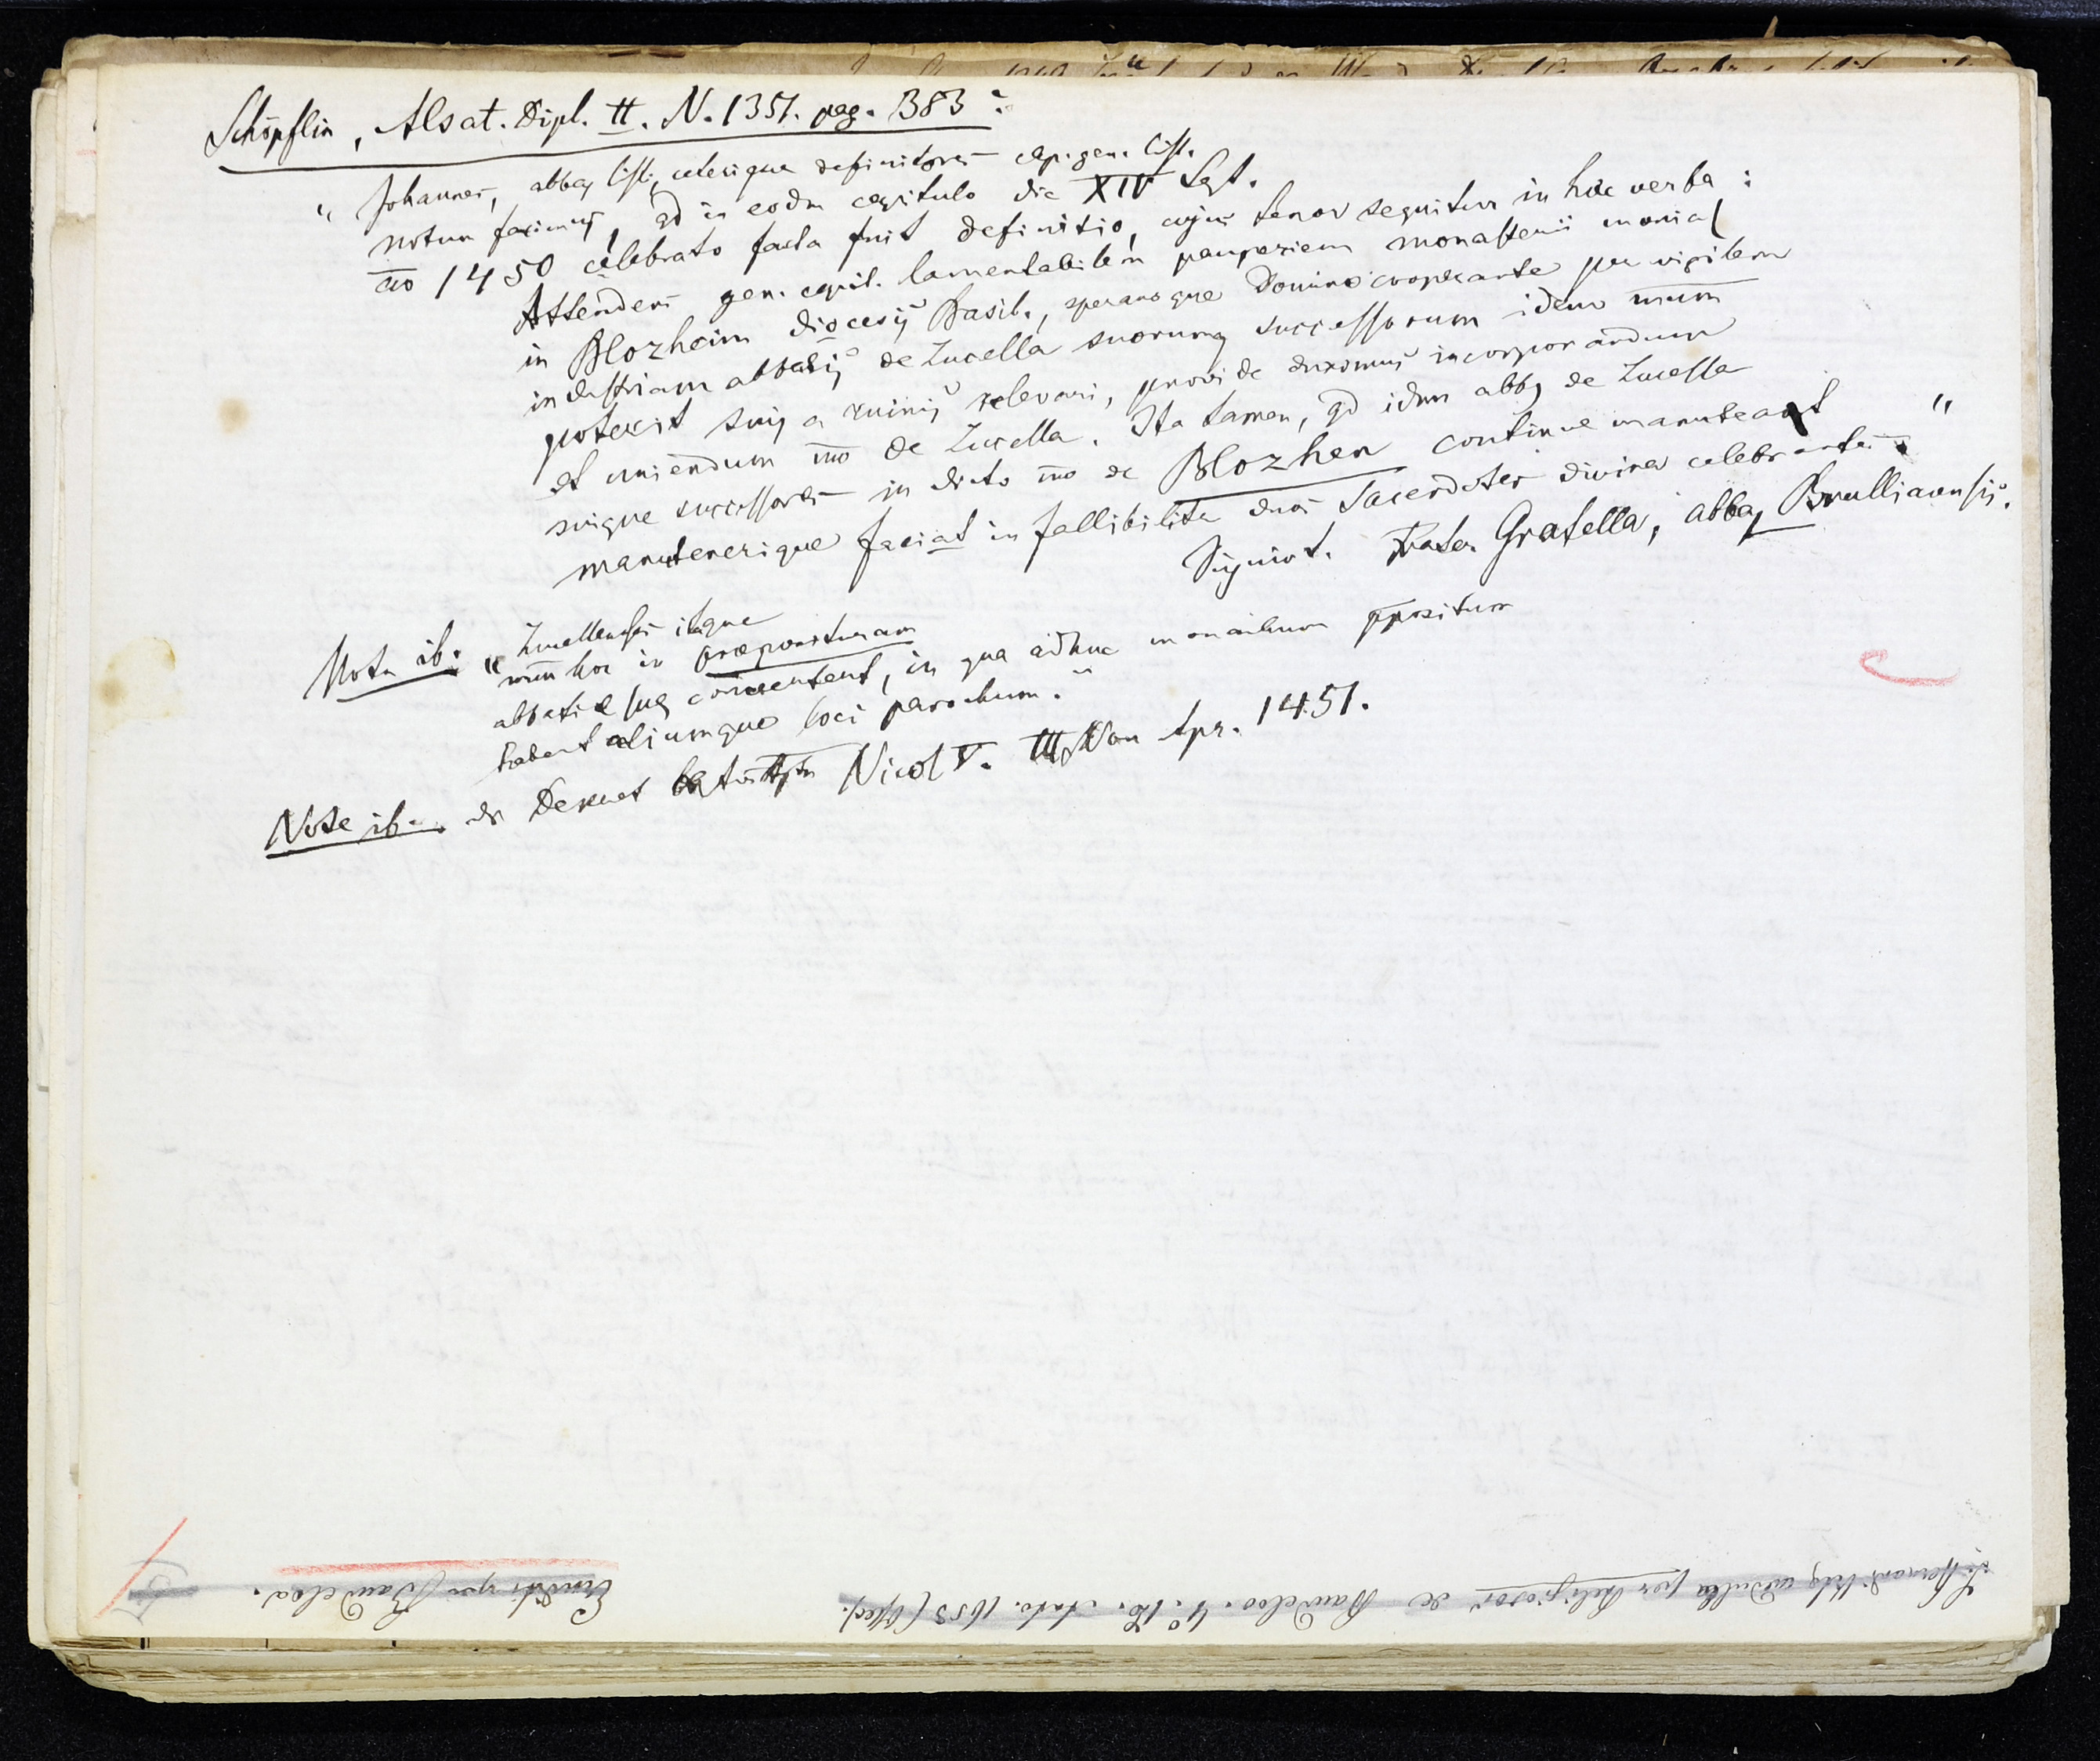 Schöpflin, Alsat. Dipl. II. N. 1351. pag. 383:
" Johannes, abbas Cist., ceterique definitores cap. gen. Cist.
notum facimus, qd in eodm capitulo die XIV Sept.
ao 1450 celebrato facta fuit definitio, cujus tenor sequitur in hæc verba:
Attendens gen. capit. lamentabilem pauperiem monasterii monial
in Blozheim diocesis Basil., speransque Domino cooperante per vigilem
industriam abbatis de Lucella suorumq successorum idem mum
poterit suis a ruinis relevari, provide duximus incorporandum
et uniendum mo de Lucella. Ita tamen, qd idem abbs de Lucella
suique successores in dicto mo de Blozhen continue manuteant "
manutenerique faciat infallibilite duos Sacerdotes divina celebrantes.
Signat. Frater Gratella, abbas Brulliacensis.
Nota ib: " Lucellenses itaque
mum hoc in præposituram
abbatiæ suæ converterunt, in qua adhuc monachum ppositum
habent aliumque loci parochum."
Note ib. Nicol V. III Non Apr. 1451.
Emditi von Baudeloa.
S. Bernardi per Religiosos de Baudeloo. 4°. 1653